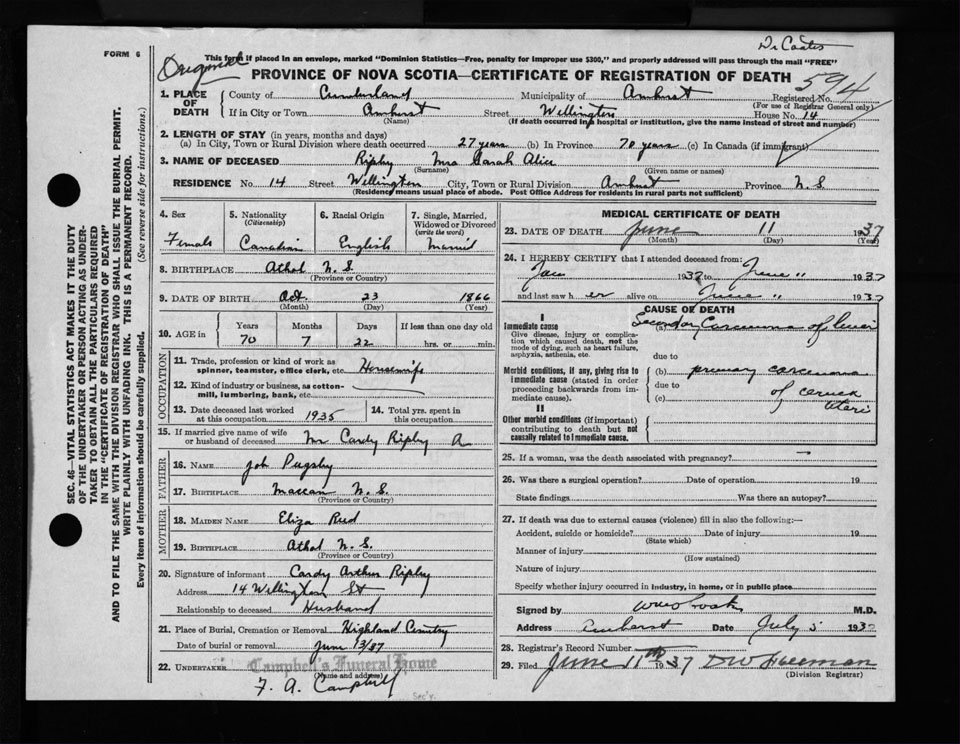 Dr Coates
FORM 6
This form if placed in an envelope, marked "Dominion Statistics—Free, penalty for improper use $300," and properly addressed will pass through the mail "FREE"
Original
PROVINCE OF NOVA SCOTIA—CERTIFICATE OF REGISTRATION OF DEATH
594
1. PLACE OF DEATH County of Cumberland Municipality of Amherst Registered No.
(For use of Registrar General only)
If in City or Town Amherst Street Wellington House No. 14
(Name) (If death occurred in hospital or institution, give the name instead of street and number)
2. LENGTH OF STAY (in years, months and days)
(a) In City, Town or Rural Division where death occurred 27 years (b) In Province 70 years (c) In Canada (if immigrant)
3. NAME OF DECEASED Ripley Mrs Sarah Alice
(Surname) (Given name or names)
RESIDENCE No. 14 Street Wellington City, Town or Rural Division Amherst Province N.S.
(Residence means usual place of abode. Post Office Address for residents in rural parts not sufficient)
4. Sex Female
5. Nationality (Citizenship) Canadian
6. Racial Origin English
7. Single, Married, Widowed or Divorced (write the word) Married
8. BIRTHPLACE Athol N.S.
(Province or Country)
9. DATE OF BIRTH Oct. 23 1866
(Month) (Day) (Year)
10. AGE in Years Months Days If less than one day old
70 7 22 hrs. or min.
OCCUPATION
11. Trade, profession or kind of work as spinner, teamster, office clerk, etc. Housewife
12. Kind of industry or business, as cotton-mill, lumbering, bank, etc.
13. Date deceased last worked at this occupation 1935
14. Total yrs. spent in this occupation
15. If married give name of wife or husband of deceased Mr Cardy Ripley A
FATHER
16. NAME Joh Pugsley
17. BIRTHPLACE Maccan N.S.
(Province or Country)
MOTHER
18. MAIDEN NAME Eliza Reid
19. BIRTHPLACE Athol N.S.
(Province or Country)
20. Signature of informant Cardy Arthur Ripley
Address 14 Wellington St
Relationship to deceased Husband
21. Place of Burial, Cremation or Removal Highland Cemetry
Date of burial or removal June 13/37
22. UNDERTAKER Campbell's Funeral Home
(Name and address)
F. A. Campbell
Sec'y.
MEDICAL CERTIFICATE OF DEATH
23. DATE OF DEATH June 11 1937
(Month) (Day) (Year)
24. I HEREBY CERTIFY that I attended deceased from:
Jan 1937 to June 11 1937
and last saw her alive on June 11 1937
CAUSE OF DEATH
I
Immediate cause
Give disease, injury or complication which caused death, not the mode of dying, such as heart failure, asphyxia, asthenia, etc.
Secondary Carcinoma of liver
due to
Morbid conditions, if any, giving rise to immediate cause (stated in order proceeding backwards from immediate cause).
(b) primary carcinoma
due to
(c) of cervix
uteri
II
Other morbid conditions (if important) contributing to death but not causally related to immediate cause.
25. If a woman, was the death associated with pregnancy?
26. Was there a surgical operation? Date of operation 19
State findings Was there an autopsy?
27. If death was due to external causes (violence) fill in also the following:—
Accident, suicide or homicide? Date of injury 19
(State which)
Manner of injury
(How sustained)
Nature of injury
Specify whether injury occurred in industry, in home, or in public place
Signed by M.D.
Address Amherst Date July 5 1937
28. Registrar's Record Number
29. Filed June 11th 1937 DW Freeman
(Division Registrar)
SEC. 46—VITAL STATISTICS ACT MAKES IT THE DUTY
OF THE UNDERTAKER OR PERSON ACTING AS UNDER-
TAKER TO OBTAIN ALL THE PARTICULARS REQUIRED
IN THE "CERTIFICATE OF REGISTRATION OF DEATH"
AND TO FILE THE SAME WITH THE DIVISION REGISTRAR WHO SHALL ISSUE THE BURIAL PERMIT.
WRITE PLAINLY WITH UNFADING INK. THIS IS A PERMANENT RECORD.
Every item of information should be carefully supplied. (See reverse side for instructions.)